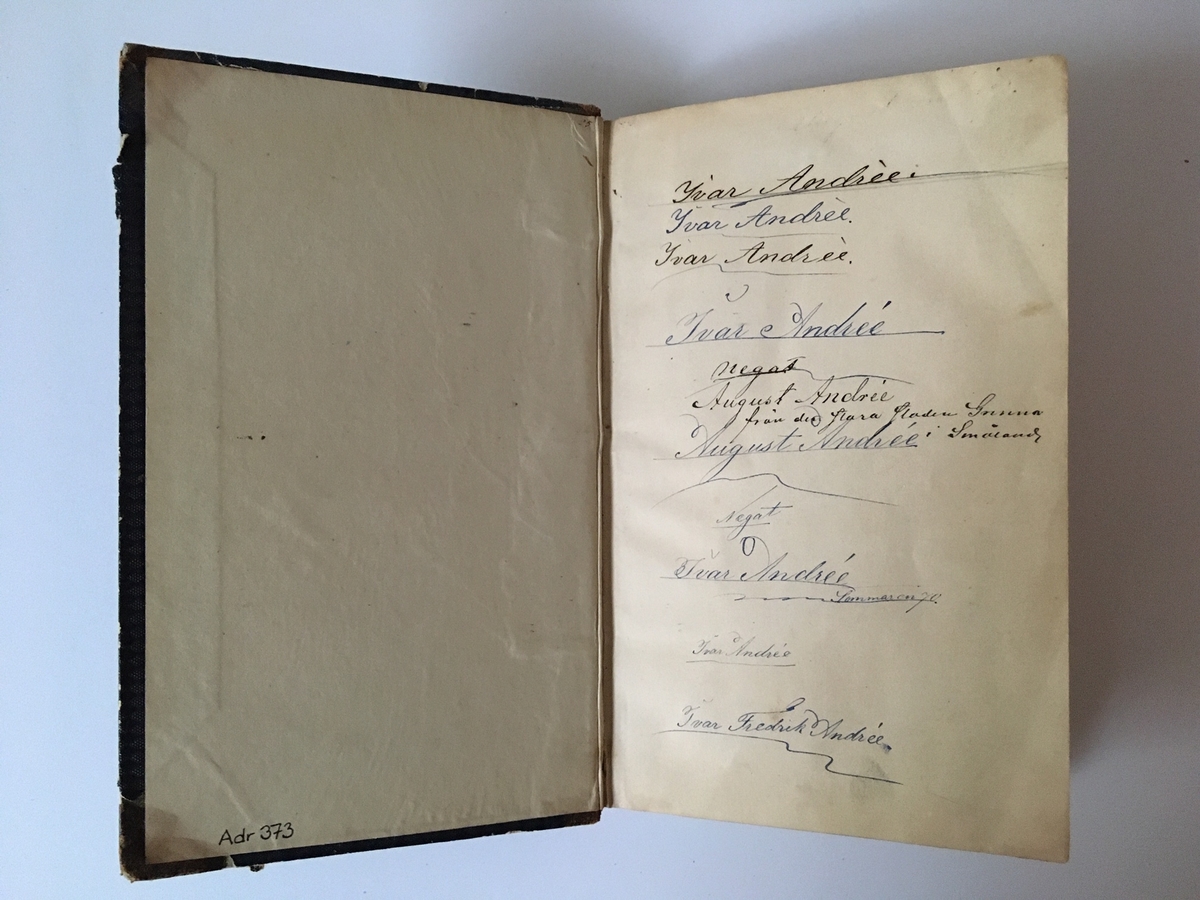 Ivar Andrèe.
Ivar Andrèe.
Ivar Andrèe.
Ivar Andrée
Negat
August Andrée
från den stara staden Grenna
August Andrée i Småland
Negat
Ivar Andrée
Sommaren 70.
Ivar Andrée
Ivar Fredrik Andrée
Adr 373